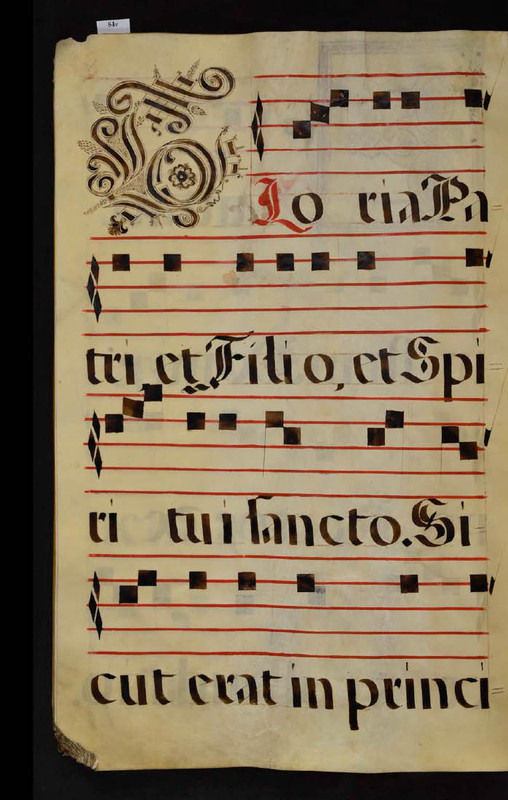 84v
GLo ria Pa
tri, et Filio, et Spi
ri tui sancto. Si
cut erat in princi